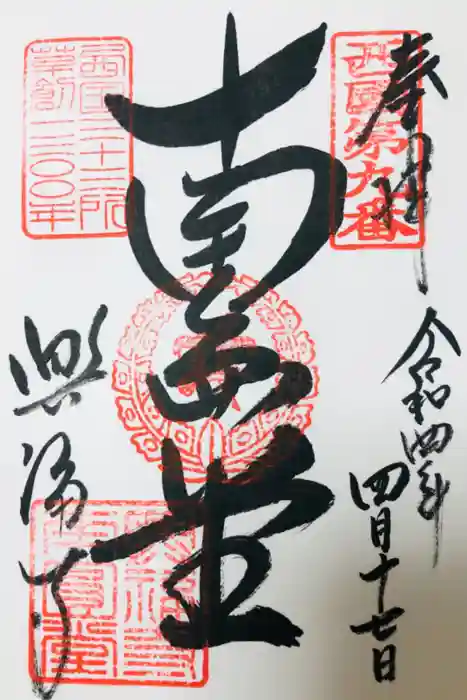 奉拝
西國第九番
令和四年
四月十七日
南円堂
西国三十三所
草創一三〇〇年
興福寺
興福寺
南圓堂